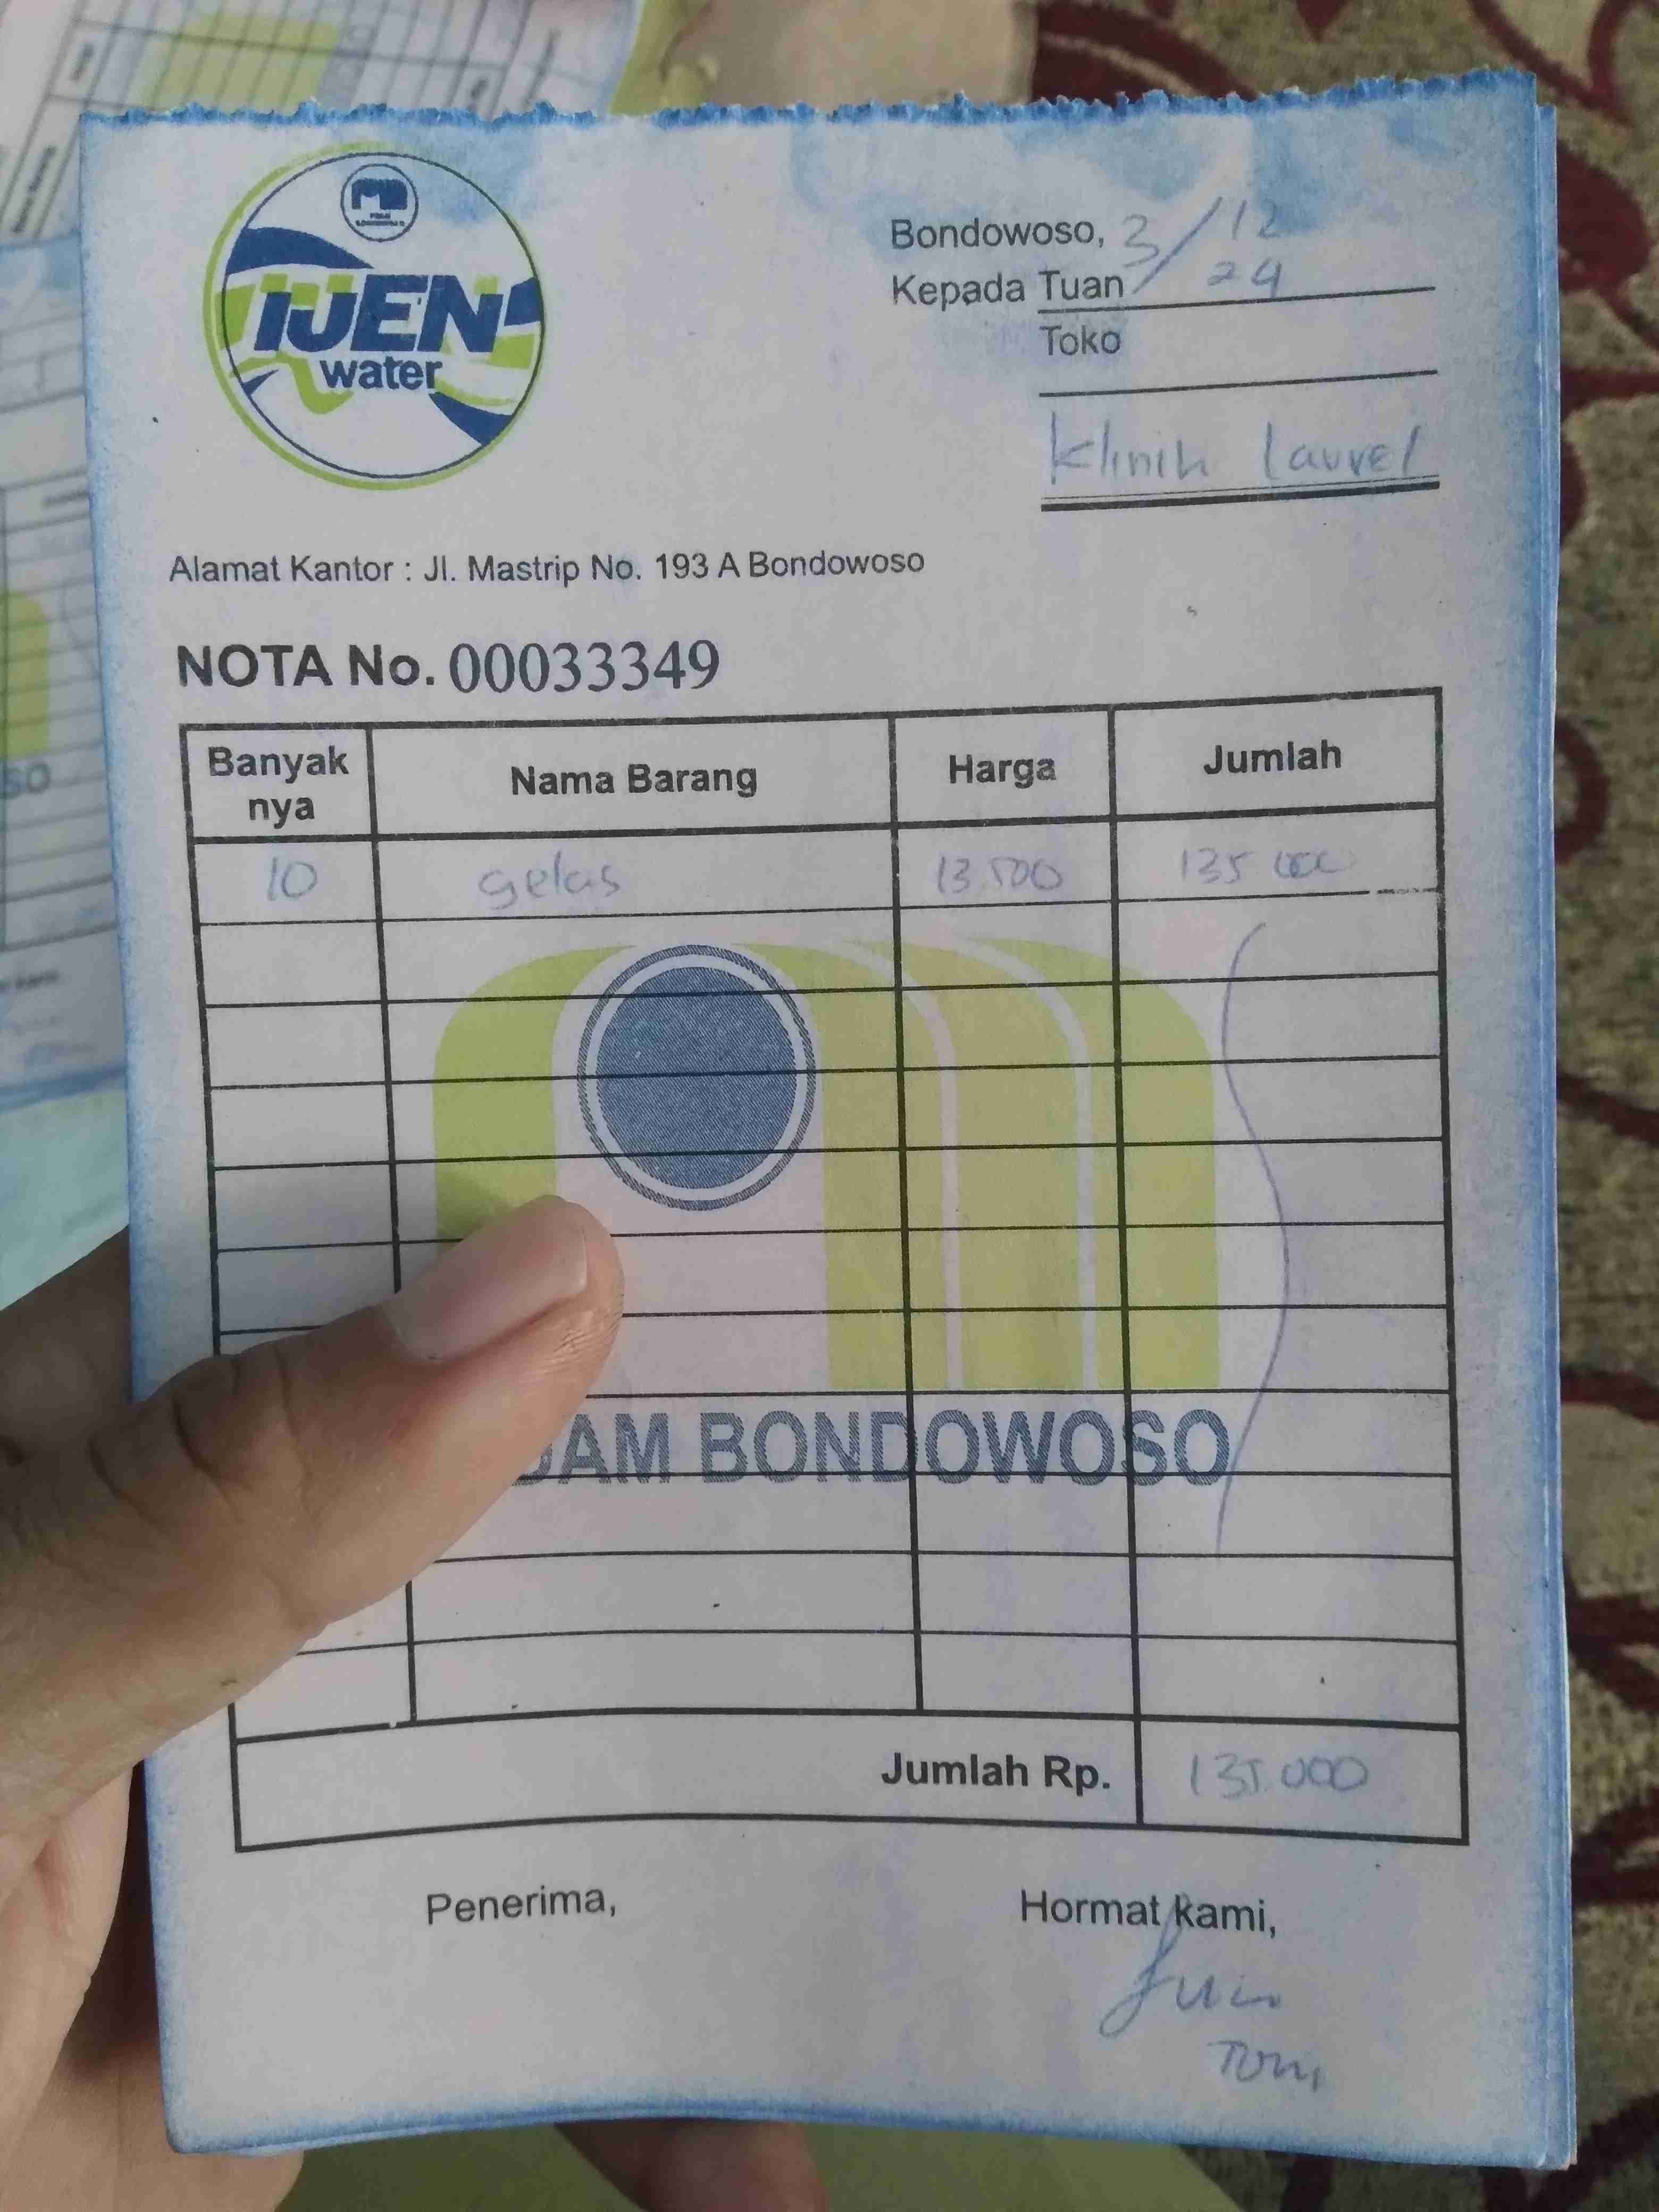 IJEN
water
Bondowoso, 3/12
24
Kepada Tuan
Toko
Klinik Laurel
Alamat Kantor : Jl. Mastrip No. 193 A Bondowoso
NOTA No. 00033349
Banyak nya Nama Barang Harga Jumlah
10 gelas 13.500 135.000
DAM BONDOWOSO
Jumlah Rp. 135.000
Penerima, Hormat kami,
Toni